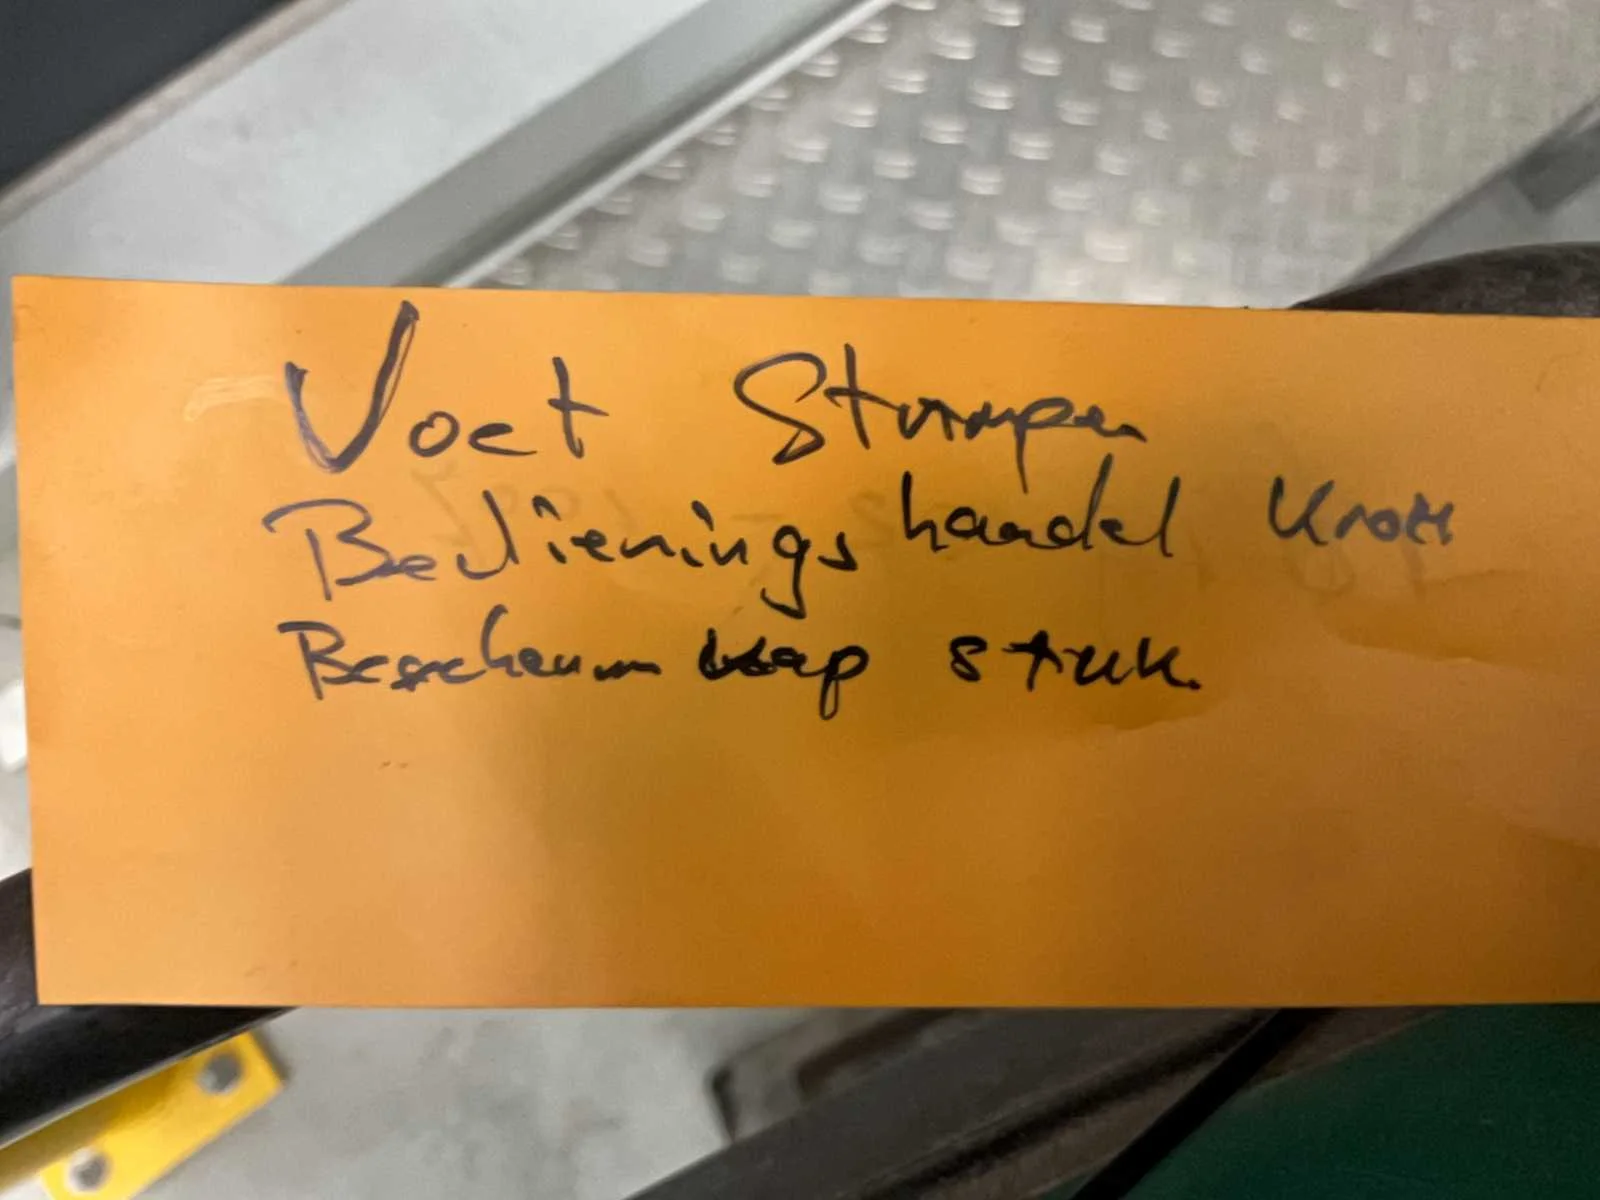 Voet Stompen
Bedienings handel Knop
Bescherm kap stuk.